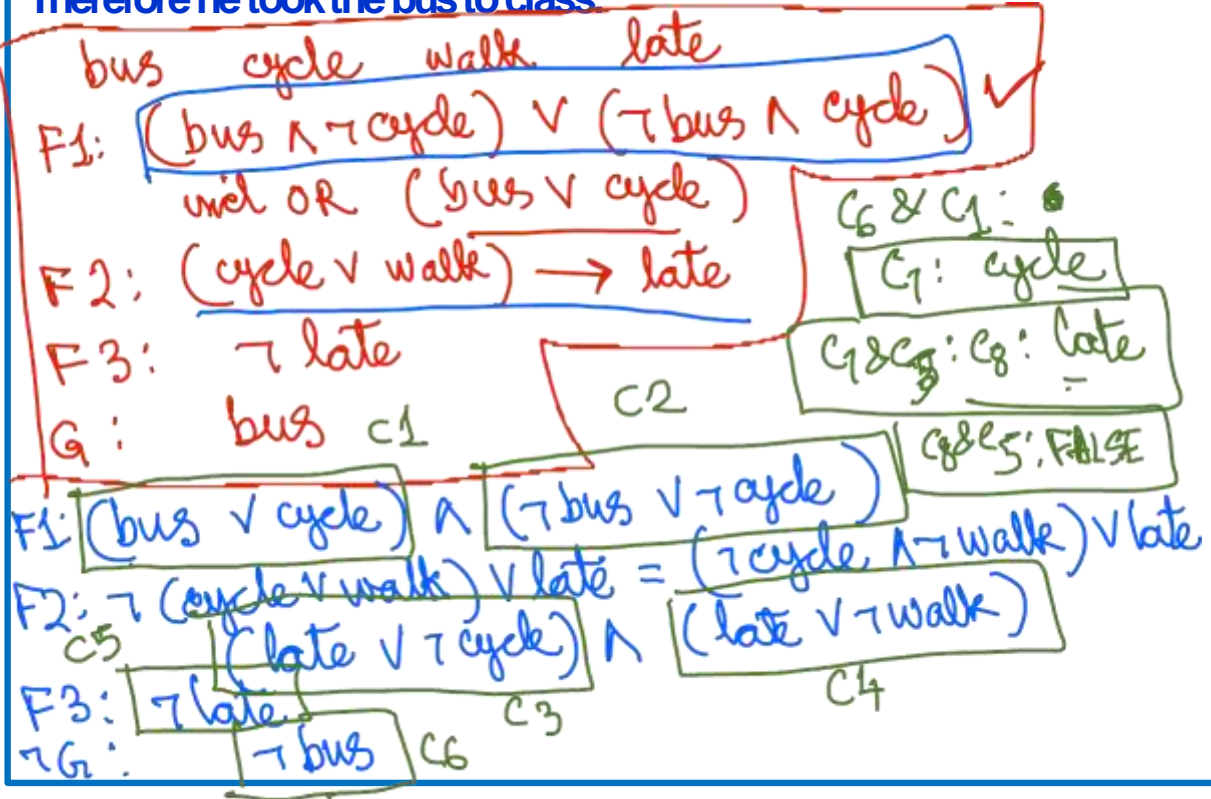 Therefore he took the bus to class.
bus cycle walk late
F1: (bus ∧ ¬cycle) ∨ (¬bus ∧ cycle) ✓
incl OR (bus ∨ cycle)
F2: (cycle ∨ walk) → late
F3: ¬late
G: bus
C6 & C1:
C7: cycle
C7&C3: C8: late
C8&C5: FALSE
C1
C2
F1: (bus ∨ cycle) ∧ (¬bus ∨ ¬cycle)
F2: ¬(cycle ∨ walk) ∨ late = (¬cycle ∧ ¬walk) ∨ late
(late ∨ ¬cycle) ∧ (late ∨ ¬walk)
C5
C3
C4
F3: ¬late
¬G: ¬bus C6